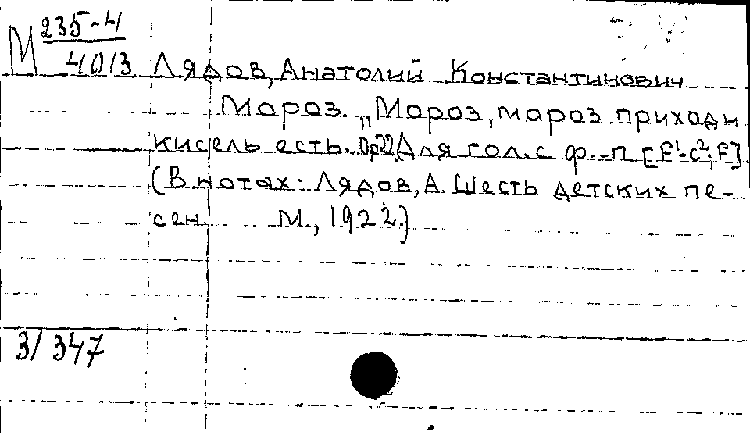 М 235-4
4013
Лядов, Анатолий Константинович
Мороз. „Мороз, мороз приходи
кисель есть. Op.22. Для гол. с ф.-п.
(В нотах: Лядов, А. Шесть детских пе-
сен М., 1922.)
3/347